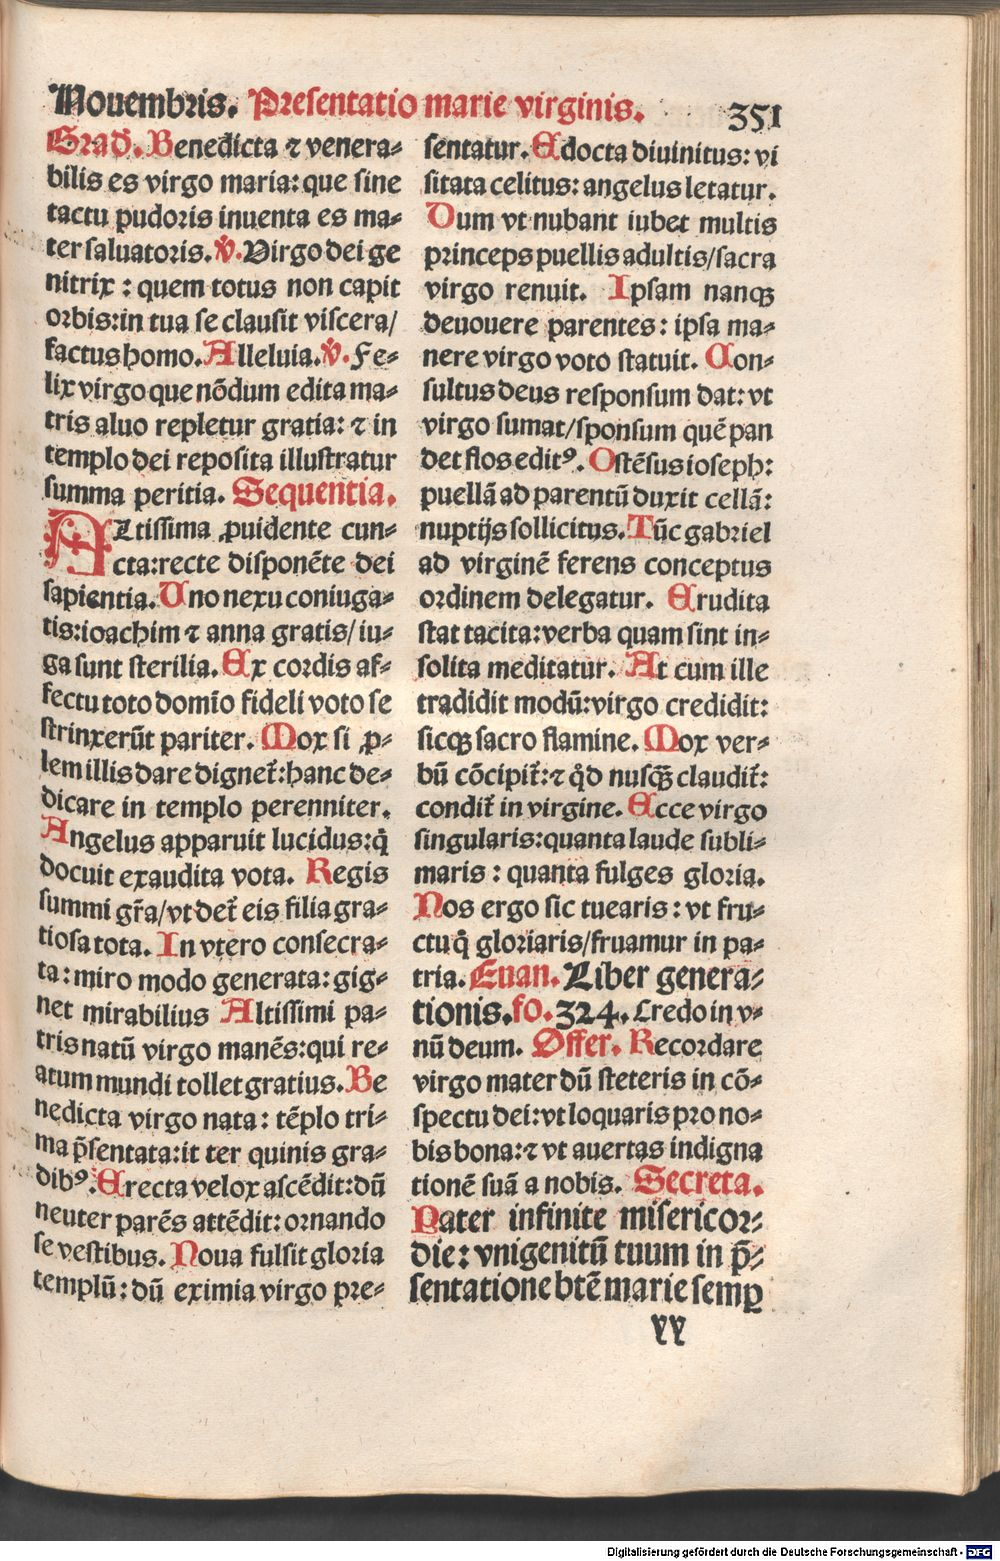 Nouembris. Presentatio marie virginis. 351
Grad̄. Benedicta ⁊ venera⸗
bilis es virgo maria: que sine
tactu pudoris inuenta es ma⸗
ter saluatoris. ℣. Virgo dei ge
nitrix : quem totus non capit
orbis: in tua se clausit viscera/
factus homo. Alleluia. ℣. Fe⸗
lix virgo que nōdum edita ma⸗
tris aluo repletur gratia: ⁊ in
templo dei reposita illustratur
summa peritia. Sequentia.
ALtissima ꝓuidente cun⸗
cta: recte disponēte dei
sapientia. Uno nexu coniuga⸗
tis: ioachim ⁊ anna gratis/ iu⸗
ga sunt sterilia. Ex cordis af⸗
fectu toto domīo fideli voto se
strinxerūt pariter. Mox si ꝓ⸗
lem illis dare dignet̄: hanc de⸗
dicare in templo perenniter.
Angelus apparuit lucidus: q̄
docuit exaudita vota. Regis
summi gr̄a/ vt det̄ eis filia gra⸗
tiosa tota. In vtero consecra⸗
ta : miro modo generata: gig⸗
net mirabilius Altissimi pa⸗
tris natū virgo manēs: qui re⸗
atum mundi tollet gratius. Be
nedicta virgo nata : tēplo tri⸗
ma p̄sentata: it ter quinis gra⸗
dibꝰ. Erecta velox ascēdit: dū
neuter parēs attēdit: ornando
se vestibus. Noua fulsit gloria
templū : dū eximia virgo pre⸗
sentatur. Edocta diuinitus: vi
sitata celitus: angelus letatur.
Dum vt nubant iubet multis
princeps puellis adultis/ sacra
virgo renuit. Ipsam nanqꝫ
deuouere parentes : ipsa ma⸗
nere virgo voto statuit. Con⸗
sultus deus responsum dat: vt
virgo sumat/ sponsum quē pan
det flos editꝰ. Ostēsus ioseph:
puellā ad parentū duxit cellā:
nuptijs sollicitus. Tūc gabriel
ad virginē ferens conceptus
ordinem delegatur. Erudita
stat tacita: verba quam sint in⸗
solita meditatur. At cum ille
tradidit modū: virgo credidit:
sicqꝫ sacro flamine. Mox ver⸗
bū cōcipit̄: ⁊ qd̄ nusqꝫ̄ claudit̄:
condit̄ in virgine. Ecce virgo
singularis: quanta laude subli⸗
maris : quanta fulges gloria.
Nos ergo sic tuearis : vt fru⸗
ctu q̄ gloriaris/ fruamur in pa⸗
tria. Euan. Liber genera⸗
tionis. fo. 324. Credo in v⸗
nū deum. Offer. Recordare
virgo mater dū steteris in cō⸗
spectu dei: vt loquaris pro no⸗
bis bona: ⁊ vt auertas indigna
tionē suā a nobis. Secreta.
Pater infinite misericor⸗
die : vnigenitū tuum in p̄⸗
sentatione btē marie semꝑ
yy
Digitalisierung gefördert durch die Deutsche Forschungsgemeinschaft - DFG